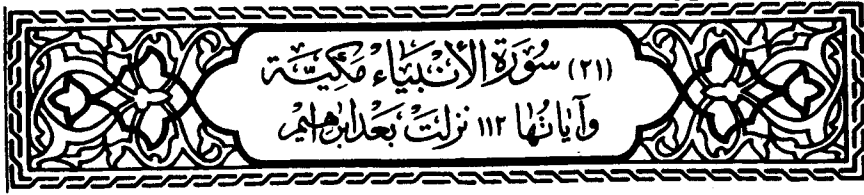 (٢١) سُورَةُ الأَنْبِيَاءِ مَكِّيَّة
وَآيَاتُهَا ١١٢ نَزَلَتْ بَعْدَ إبْرَاهِيمَ